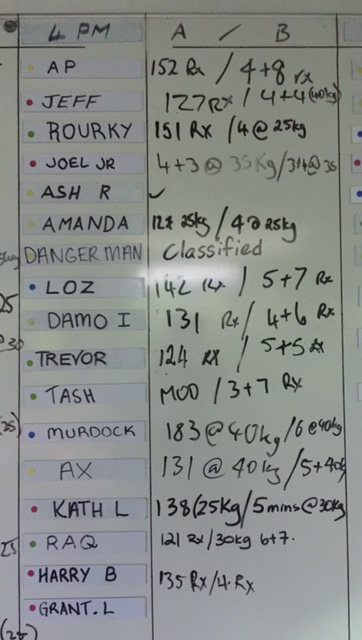 4 PM A / B
AP 152 Rx / 4+8 rx
JEFF 127 RX / 4+4 (40kg)
ROURKY 151 RX / 4 @ 25kg
JOEL JR 4+3 @ 35Kg / 314@35
ASH R ✓
AMANDA 25kg / 4@25kg
DANGERMAN Classified
LOZ 142 Rx / 5+7 Rx
DAMO I 131 Rx / 4+6 Rx
TREVOR 124 RX / 5+5 RX
TASH MOD / 3+7 Rx
MURDOCK 183 @ 40kg / 6@40kg
AX 131 @ 40kg / 5+40kg
KATH L 138 (25Kg / 5mins@30kg
RAQ 121 Rx / 30kg 6+7.
HARRY B 135 Rx / 4. Rx
GRANT.L